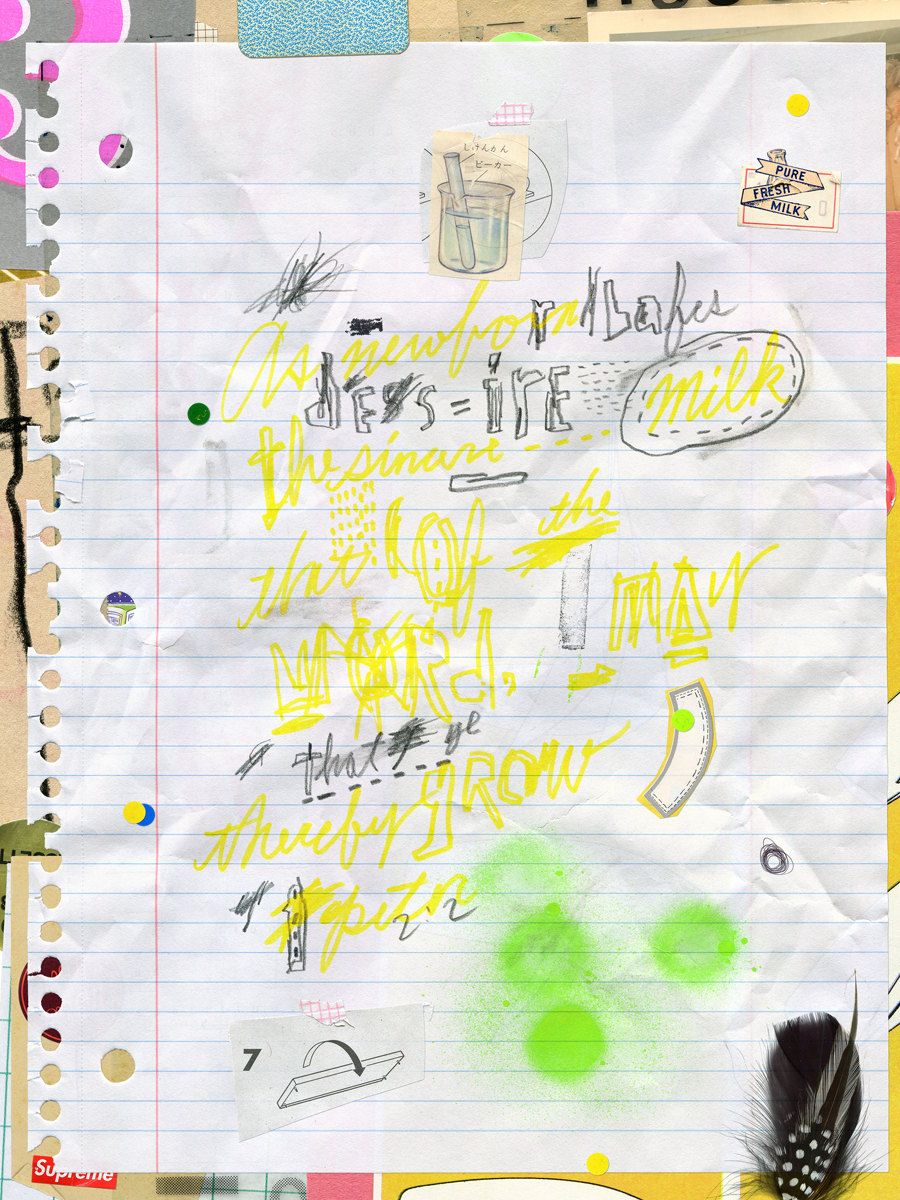 しけんかん
ビーカー
PURE
FRESH
MILK
As newborn babes
des=ire
milk
the sincere
that of the
word, may
that ye
thereby grow
2:2
7
Supreme